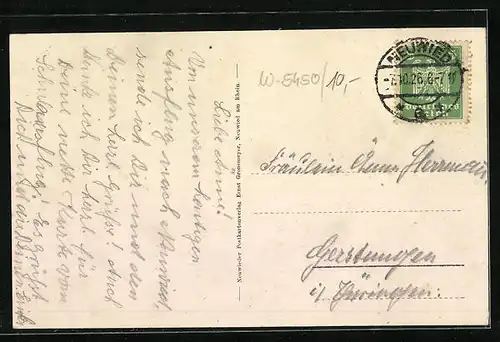 Liebe Anni!
Von unserem heutigen
Ausflug nach Neuwied,
sende ich Dir und den
Deinen herzl. Grüsse! Auch
danke ich Dir herzl. für
Deine nette Karte vom
Schulausflug! Es grüßt
Dich und die Deinen
Neuwieder Postkartenverlag Ernst Geissmeyer, Neuwied am Rhein.
W-5450/10,-
NEUWIED
-7.10.26.6-7 N
Deutsches
Reich
Fräulein Anni Herrmann
Gerstungen
i/Thüringen.